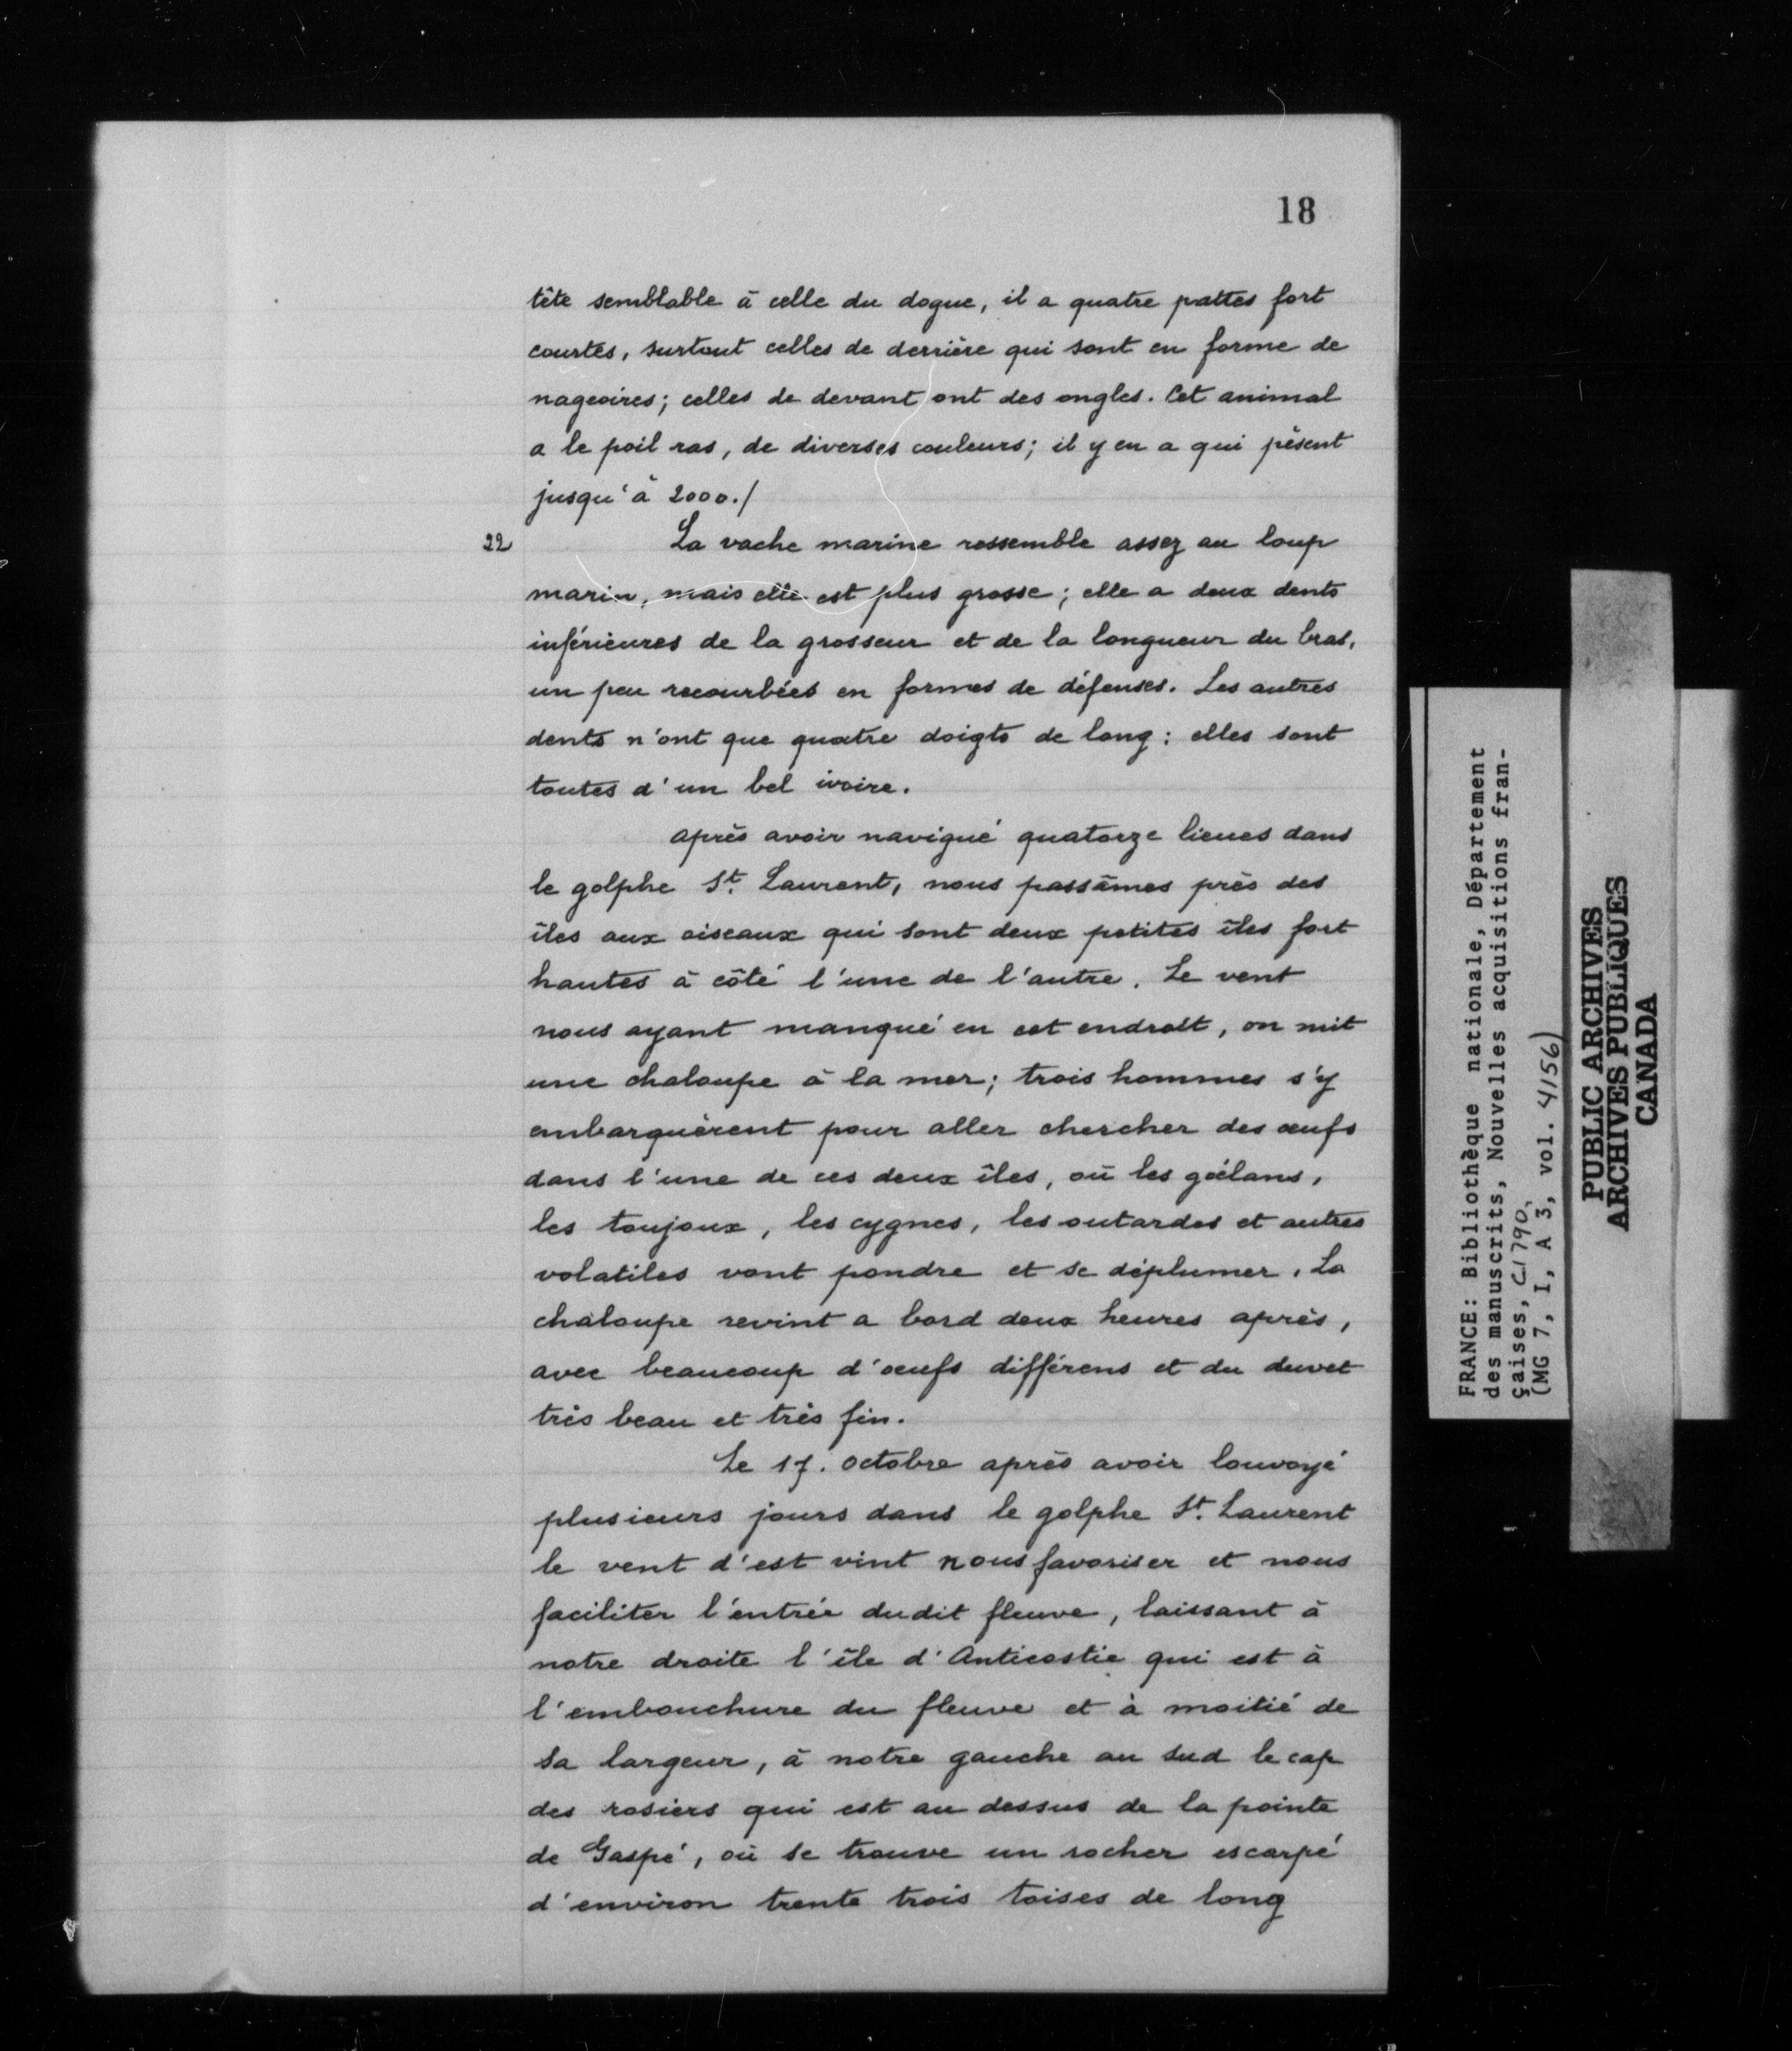 18
tête semblable à celle du dogue, il a quatre pattes fort
courtes, surtout celles de derrière qui sont en forme de
nageoires; celles de devant ont des ongles. Cet animal
a le poil ras, de diverses couleurs; il y en a qui pèsent
jusqu'à 2000./
22
La vache marine ressemble assez au loup
marin, mais elle est plus grosse; elle a deux dents
inférieures de la grosseur et de la longueur du bras,
un peu recourbées en formes de défenses. Les autres
dents n'ont que quatre doigts de long: elles sont
toutes d'un bel ivoire.
après avoir navigué quatorze lieues dans
le golphe St. Laurent, nous passâmes près des
îles aux oiseaux qui sont deux petites îles fort
hautes à côté l'une de l'autre. Le vent
nous ayant manqué en cet endroit, on mit
une chaloupe à la mer; trois hommes s'y
embarquèrent pour aller chercher des œufs
dans l'une de ces deux îles, où les goëlans,
les toujoux, les cygnes, les outardes et autres
volatiles vont pondre et se déplumer. La
chaloupe revint a bord deux heures après,
avec beaucoup d'œufs différens et du duvet
très beau et très fin.
Le 17. octobre après avoir louvoyé
plusieurs jours dans le golphe St. Laurent
le vent d'est vint nous favoriser et nous
faciliter l'entrée dudit fleuve, laissant à
notre droite l'île d'Anticostie qui est à
l'embouchure du fleuve et à moitié de
sa largeur, à notre gauche au sud le cap
des rosiers qui est au dessus de la pointe
de Gaspé, où se trouve un rocher escarpé
d'environ trente trois toises de long
FRANCE: Bibliothèque nationale, Département
des manuscrits, Nouvelles acquisitions fran-
çaises, C-1790,
(MG 7, I, A 3, vol. 4156)
PUBLIC ARCHIVES
ARCHIVES PUBLIQUES
CANADA